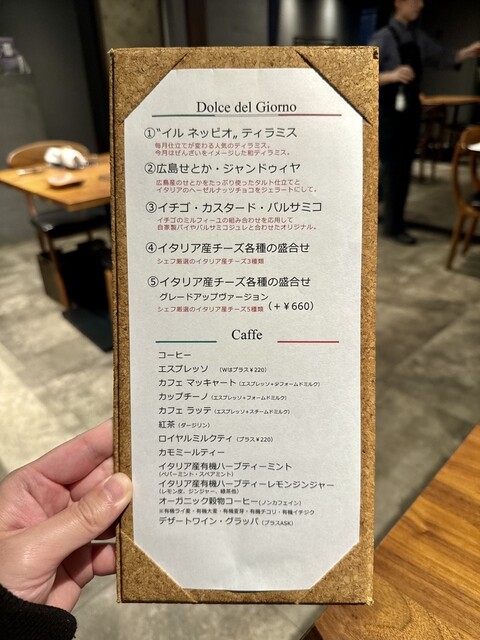 Dolce del Giorno
①“イル ネッビオ„ ティラミス
毎月仕立てが変わる人気のティラミス。
今月はぜんざいをイメージした和ティラミス。
②広島せとか・ジャンドゥイヤ
広島産のせとかをたっぷり使ったタルト仕立てと
イタリアのヘーゼルナッツチョコをジェラートにして。
③イチゴ・カスタード・バルサミコ
イチゴのミルフィーユの組み合わせを応用して
自家製パイやバルサミコジュレと合わせたオリジナル。
④イタリア産チーズ各種の盛合せ
シェフ厳選のイタリア産チーズ3種類
⑤イタリア産チーズ各種の盛合せ
グレードアップヴァージョン
シェフ厳選のイタリア産チーズ5種類 (+¥660)
Caffe
コーヒー
エスプレッソ (Wはプラス¥220)
カフェ マッキャート(エスプレッソ+少フォームドミルク)
カップチーノ(エスプレッソ+フォームドミルク)
カフェ ラッテ(エスプレッソ+スチームドミルク)
紅茶(ダージリン)
ロイヤルミルクティ(プラス¥220)
カモミールティー
イタリア産有機ハーブティーミント
(ペパーミント・スペアミント)
イタリア産有機ハーブティーレモンジンジャー
(レモン皮、ジンジャー、緑茶他)
オーガニック穀物コーヒー(ノンカフェイン)
※有機ライ麦・有機大麦・有機麦芽・有機チコリ・有機イチジク
デザートワイン・グラッパ(プラスASK)